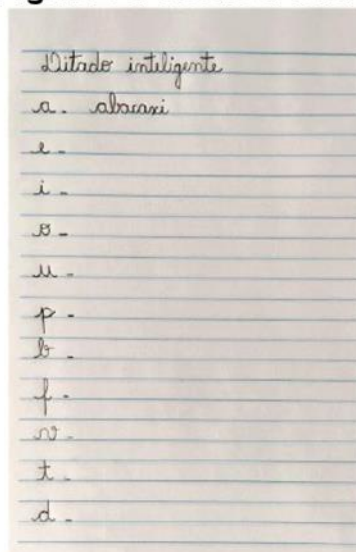 Ditado inteligente
a. abacaxi
e -
i -
o -
u -
p -
b -
f -
v -
t -
d -